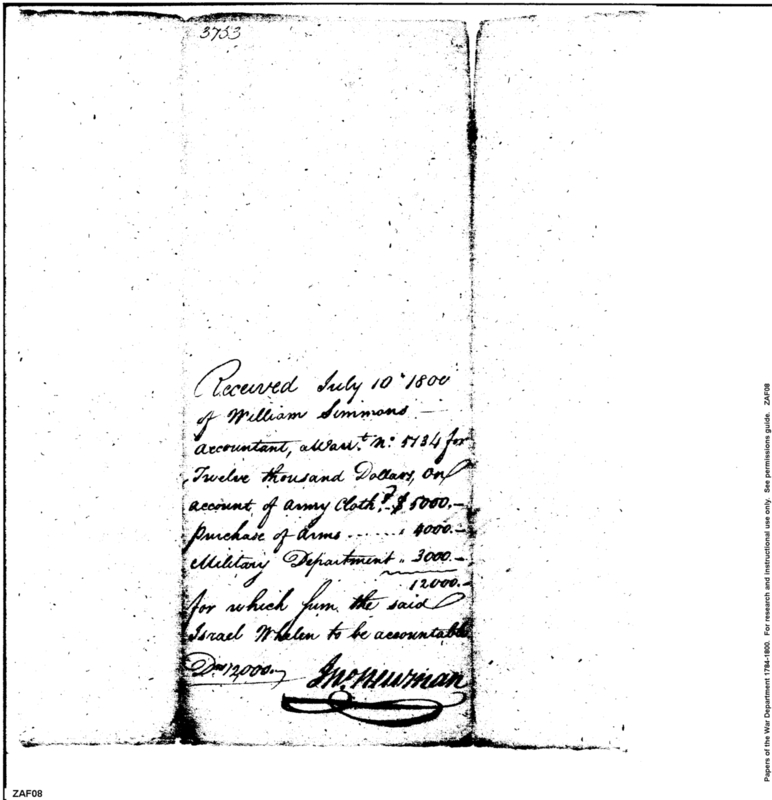 3753
Received July 10th 1800
of William Simmons
Accountant, a Warrt. No. 5134 for
Twelve thousand Dollars, on
account of Army Clothg. $ 5000.—
Purchase of Arms ...... " 4000.—
Military Department " 3000.—
12000.—
for which sum the said
Israel Whelen to be accountable
Drs 12000.
Jno Newman
ZAF08
Papers of the War Department 1784-1800. For research and instructional use only. See permissions guide. ZAF08